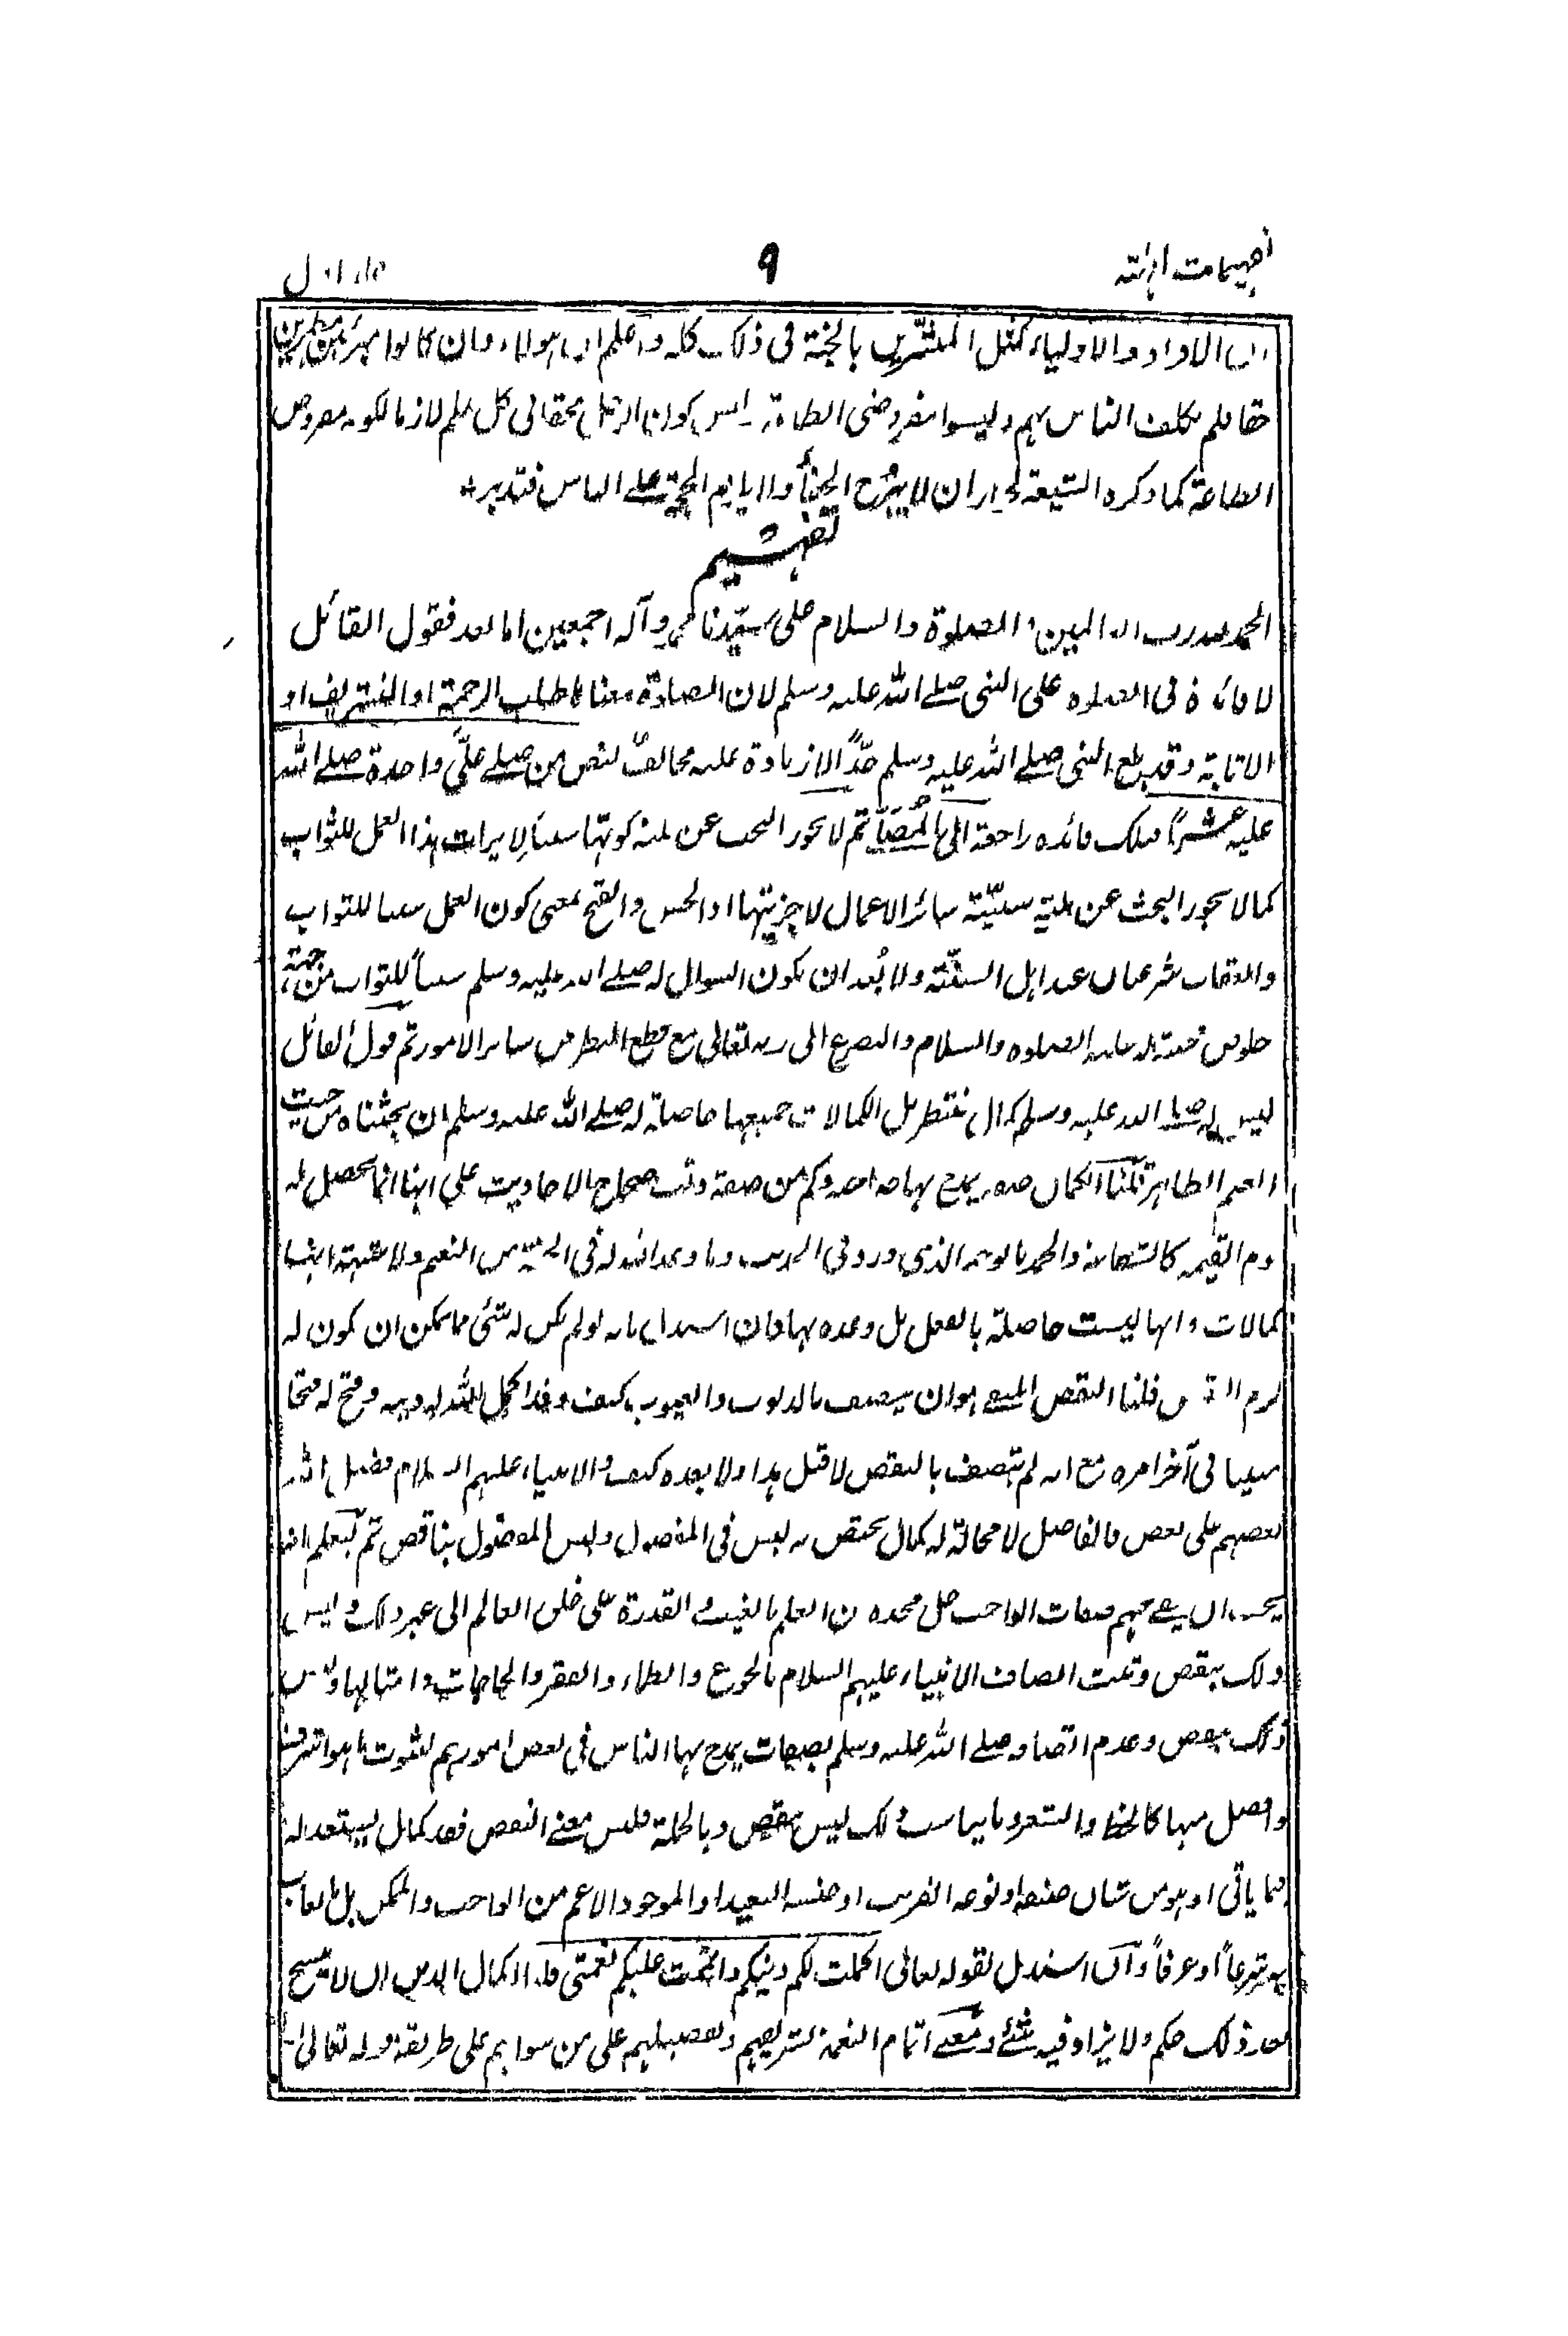 تفهيمات الهية ٩ جلد اول
الاولاد والاولياء كمثل المبشرين بالجنة فى ذلك كله واعلم ان هولاء وان كانوا مبرئين مطهرين
حقا فلم يكلف الناس بهم وليسوا مفروضى الطاعة وليس كون الرجل محقا فى كل علم لازما لكونه مفروض
الطاعة كما ذكره الشيعة لجواز ان لا يشرح الحق ولا يلزم الحجة على الناس فتدبر
تفهيم
الحمد لله رب العالمين والصلوة والسلام على سيدنا محمد وآله اجمعين اما بعد فقول القائل
لا فائدة فى الصلوة على النبى صلے الله عليه وسلم لان الصلوة معناها طلب الرحمة او التشريف او
الاثابة وقد بلغ النبى صلے الله عليه وسلم حدًّا لا زيادة عليه مخالفٌ لنص من صلے علىَّ واحدة صلے الله
عليه عشرًا فتلك فائدة راجعة الى المُصَلّى ثم لا يجوز البحث عن لمية كونها سببًا لايراث هذا العمل للثواب
كما لا يجوز البحث عن لمية سببية سائر الاعمال لاجزيتها اذ الحسن والقبح بمعنى كون العمل سببا للثواب
والعقاب شرعيان عند اهل السنة ولا بُعد ان يكون السوال له صلے الله عليه وسلم سببًا للثواب من جهة
خلوص محبته عليه الصلوة والسلام والتضرع الى ربه تعالى مع قطع النظر من سائر الامور ثم قول القائل
ليس له صلے الله عليه وسلم كمال ينتظر بل الكمالات جميعها حاصلة له صلے الله عليه وسلم ان بحثناه من حيث
العلم الظاهر قلنا الكمال صفة يمدح بها صاحبه وكم من صفة دلت صحاح الاحاديث على انها انما تحصل له
يوم القيمة كالشفاعة والحمد بالوجه الذى ورد فى الحديث وما وعد الله له فى الجنة من النعم ولا شبهة انها
كمالات وانها ليست حاصلة بالفعل بل وعده بها فان استدل بانه لو لم يكن له شئى مما يمكن ان يكون له
لزم النقص قلنا النقص المنفى هو ان يتصف بالذنوب والعيوب كيف وقد اكمل الله له دينه وفتح له فتحا
مبينا فى آخر امره مع انه لم يتصف بالنقص لا قبل هذا ولا بعده كيف والانبياء عليهم السلام فضل الله
بعضهم على بعض فالفاضل لا محالة له كمال يختص به ليس فى المفضول وليس المفضول بناقص ثم ليعلم انه
يجب ان ينفى عنهم صفات الواجب جل مجده من العلم بالغيب والقدرة على خلق العالم الى غير ذلك وليس
ذلك بنقص وثبت اتصاف الانبياء عليهم السلام بالجوع والظماء والفقر والحاجات وامثالها وليس
ذلك بنقص وعدم اتصافه صلے الله عليه وسلم بصفات يمدح بها الناس فى بعض امورهم لثبوت ما هو اشرف
وافضل منها كالخط والشعر وما يناسب ذلك ليس بنقص وبالجملة فليس معنے النقص فقد كمال يستعد له
فيما ياتى او هو من شان صنفه او نوعه القريب او جنسه البعيد او الموجود الاعم من الواجب والممكن بل ما يعاب
به شرعاً او عرفاً وان استدل بقوله تعالى اكملت لكم دينكم واتممت عليكم نعمتى قلنا اكمال الدين ان لا ينسخ
بعد ذلك حكم ولا يزاد فيه شئے ومعنے اتمام النعمة تشريفهم وتفضيلهم على من سواهم على طريقة قوله تعالى